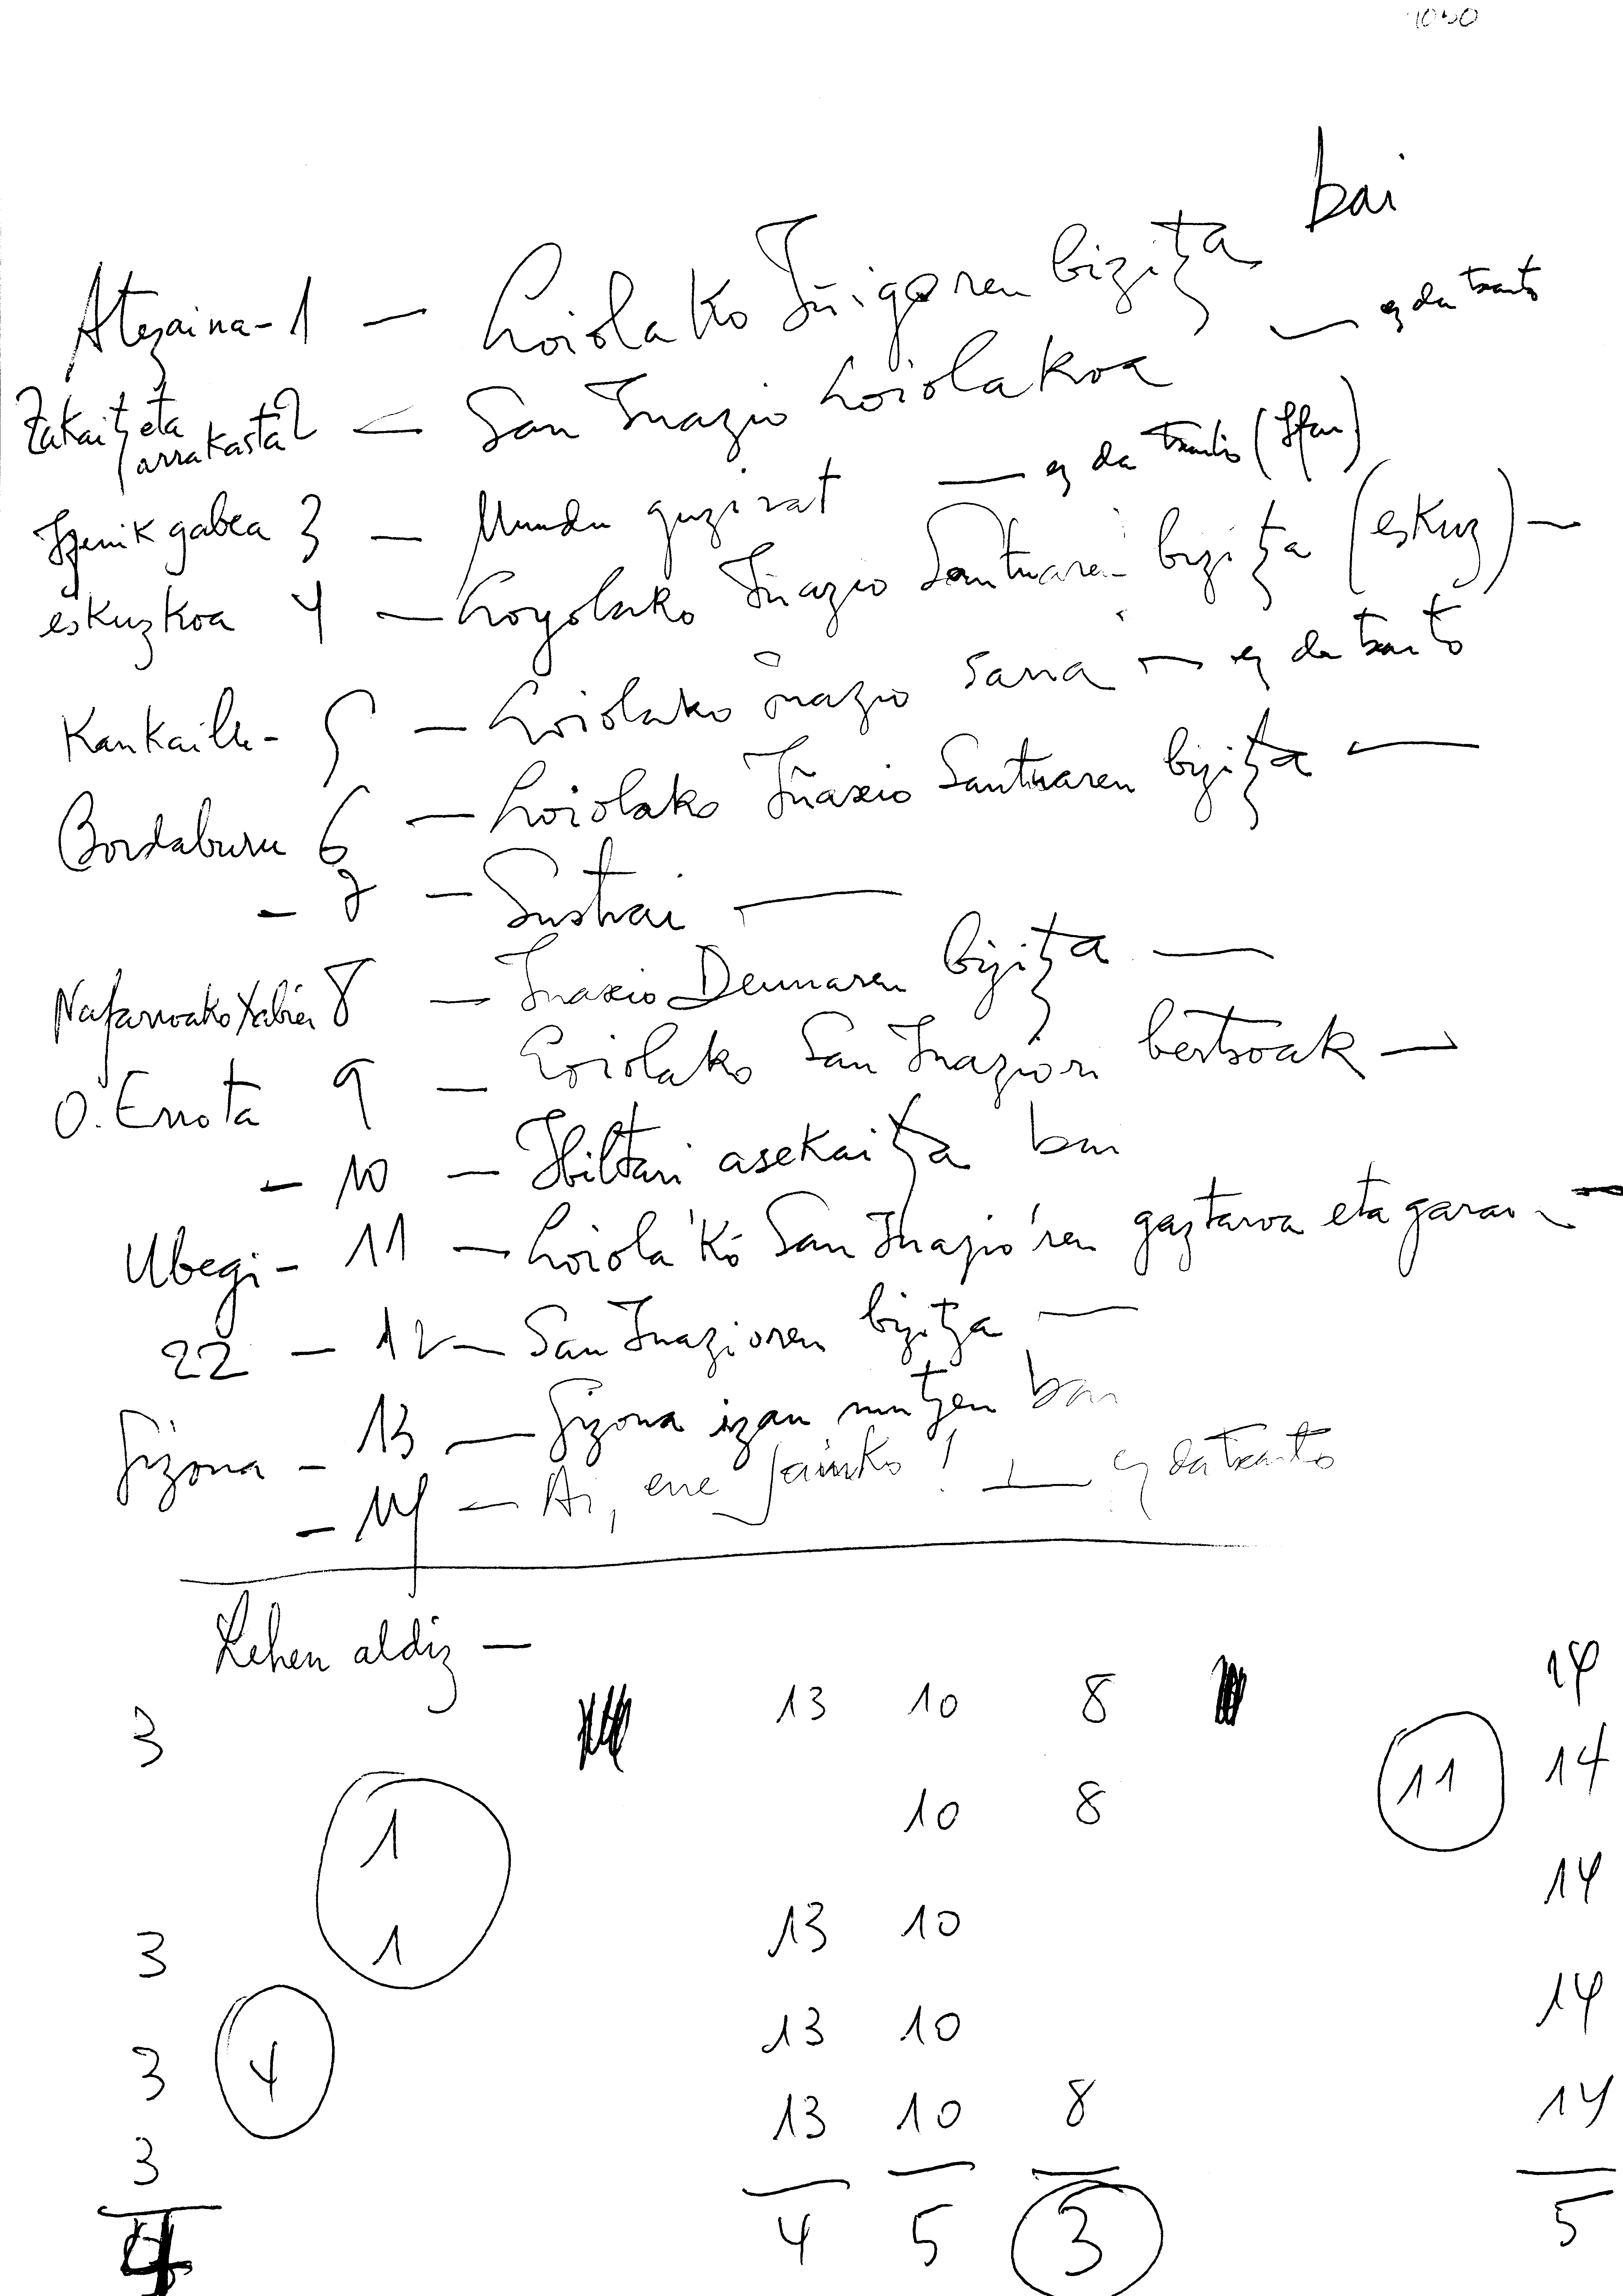 bai
Atezaina - 1 — Loiolako Iñigoren bizitza
Zakaitz eta arrakasta 2 — San Inazio Loiolakoa — ez da txarto
Izenik gabea 3 — Mundu guzirat — ez da txarto
eskuzkoa 4 — Loyolako Iñazio Santuaren bizitza (eskuz) —
Kankaillu - 5 — Loiolako Inazio saria — ez da txarto
Bordaburu 6 — Loiolako Iñaxio Santuaren bizitza —
- 7 — Sustrai —
Nafarroako Xabier 8 — Inaxio Deunaren bizitza —
O. Errota 9 — Loiolako San Inaziori bertsoak —
- 10 — Hiltari asekaitza bai
Ubegi - 11 — Loiola'ko San Inazio'ren gaztaroa eta garai —
22 - 12 — San Inazioren bizitza —
Gizona - 13 — Gizona izan nintzen bai
- 14 — Ai, ene Jainko! — ez da txarto
Lehen aldiz —
3 13 10 8 14
1 10 8 11 14
3 1 13 10 14
3 4 13 10 14
3 13 10 8 14
4 4 5 3 5